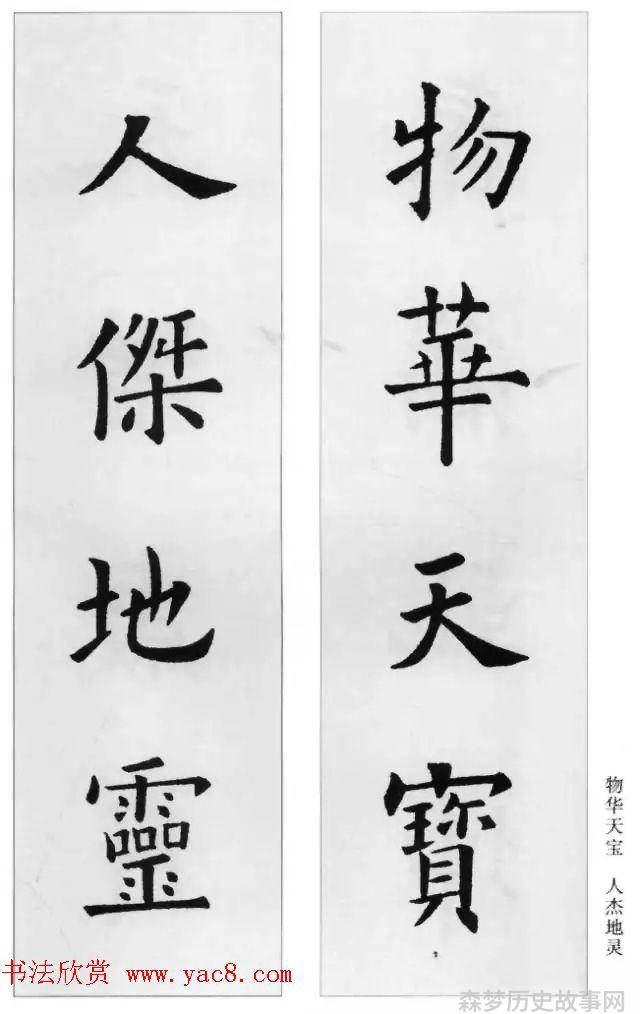 物華天寶
人傑地靈
物华天宝 人杰地灵
书法欣赏 www.yac8.com
森梦历史故事网